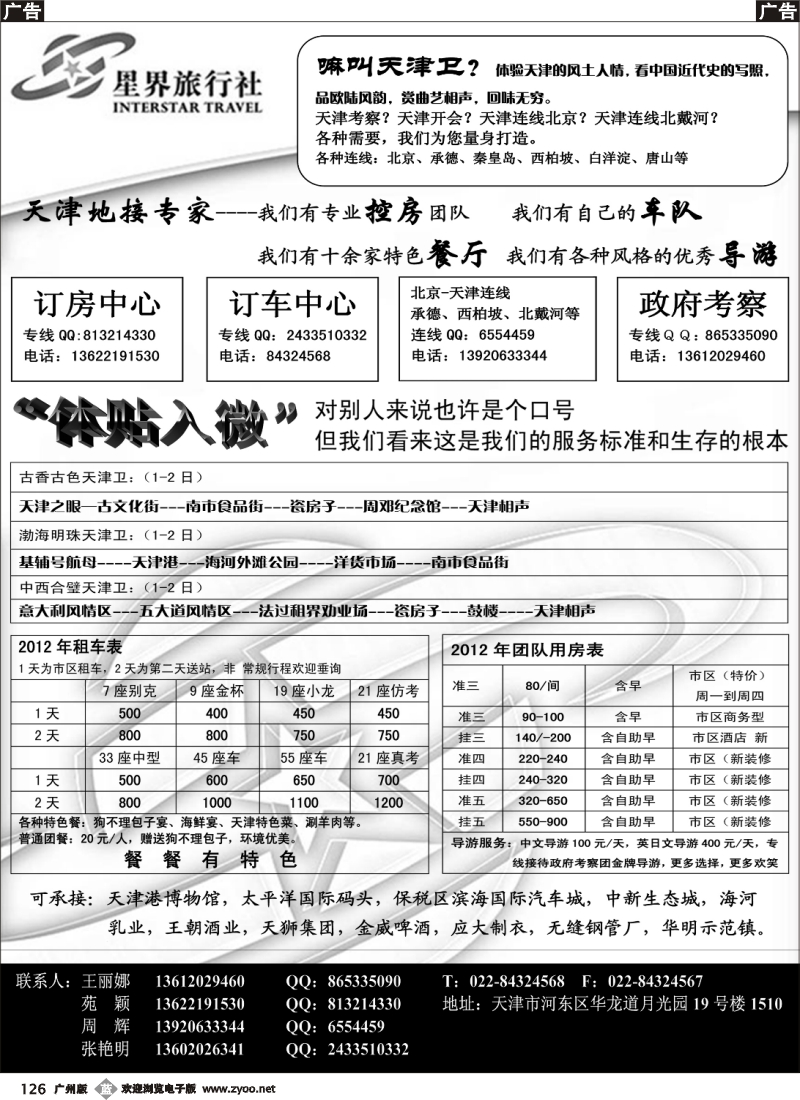 广告
广告
星界旅行社
INTERSTAR TRAVEL
嘛叫天津卫？ 体验天津的风土人情，看中国近代史的写照，
品欧陆风韵，赏曲艺相声，回味无穷。
天津考察？天津开会？天津连线北京？天津连线北戴河？
各种需要，我们为您量身打造。
各种连线：北京、承德、秦皇岛、西柏坡、白洋淀、唐山等
天津地接专家----我们有专业控房团队 我们有自己的车队
我们有十余家特色餐厅 我们有各种风格的优秀导游
订房中心
专线QQ:813214330
电话：13622191530
订车中心
专线QQ：2433510332
电话：84324568
北京-天津连线
承德、西柏坡、北戴河等
连线QQ：6554459
电话：13920633344
政府考察
专线ＱＱ：865335090
电话：13612029460
“体贴入微”
对别人来说也许是个口号
但我们看来这是我们的服务标准和生存的根本
古香古色天津卫：（1-2 日）
天津之眼—古文化街---南市食品街---瓷房子---周邓纪念馆---天津相声
渤海明珠天津卫：（1-2 日）
基辅号航母----天津港---海河外滩公园----洋货市场----南市食品街
中西合璧天津卫：（1-2 日）
意大利风情区---五大道风情区---法过租界劝业场---瓷房子---鼓楼----天津相声
2012 年租车表
1 天为市区租车，2 天为第二天送站，非 常规行程欢迎垂询
7 座别克 9 座金杯 19 座小龙 21 座仿考
1 天 500 400 450 450
2 天 800 800 750 750
33 座中型 45 座车 55 座车 21 座真考
1 天 500 600 650 700
2 天 800 1000 1100 1200
各种特色餐：狗不理包子宴、海鲜宴、天津特色菜、涮羊肉等。
普通团餐：20 元/人，赠送狗不理包子，环境优美。
餐 餐 有 特 色
2012 年团队用房表
准三 80/间 含早 市区（特价）
周一到周四
准三 90-100 含早 市区商务型
挂三 140/-200 含自助早 市区酒店 新
准四 220-240 含自助早 市区（新装修
挂四 240-320 含自助早 市区（新装修
准五 320-650 含自助早 市区（新装修
挂五 550-900 含自助早 市区（新装修
导游服务：中文导游 100 元/天，英日文导游 400 元/天，专
线接待政府考察团金牌导游，更多选择，更多欢笑
可承接：天津港博物馆，太平洋国际码头，保税区滨海国际汽车城，中新生态城，海河
乳业，王朝酒业，天狮集团，金威啤酒，应大制衣，无缝钢管厂，华明示范镇。
联系人：王丽娜 13612029460 QQ：865335090 T：022-84324568 F：022-84324567
苑 颖 13622191530 QQ：813214330 地址：天津市河东区华龙道月光园 19 号楼 1510
周 辉 13920633344 QQ：6554459
张艳明 13602026341 QQ：2433510332
126 广州版 蓝 欢迎浏览电子版 www.zyoo.net